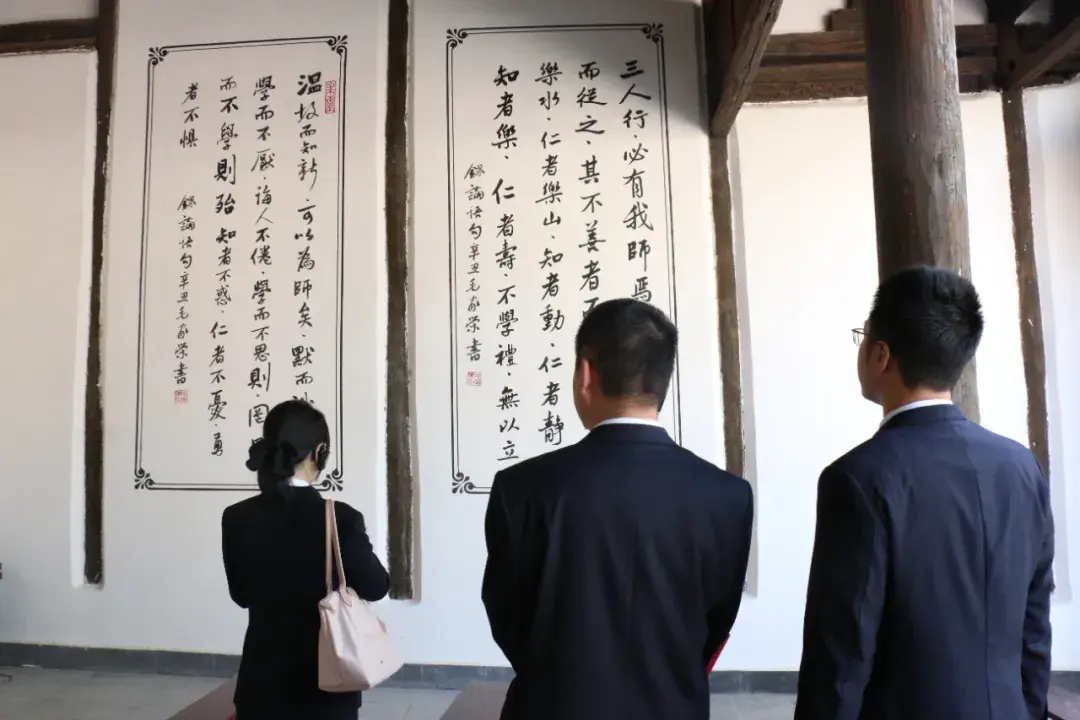 三人行、必有我師焉
而從之、其不善者而
樂水、仁者樂山、知者動、仁者靜
知者樂、仁者壽、不學禮、無以立
錄論语句辛丑毛家荣書
温故而知新、可以為師矣、默而
學而不厭、誨人不倦、學而不思則、罔
而不學則殆 知者不惑、仁者不憂、勇
者不惧
錄論语句辛丑毛家荣書